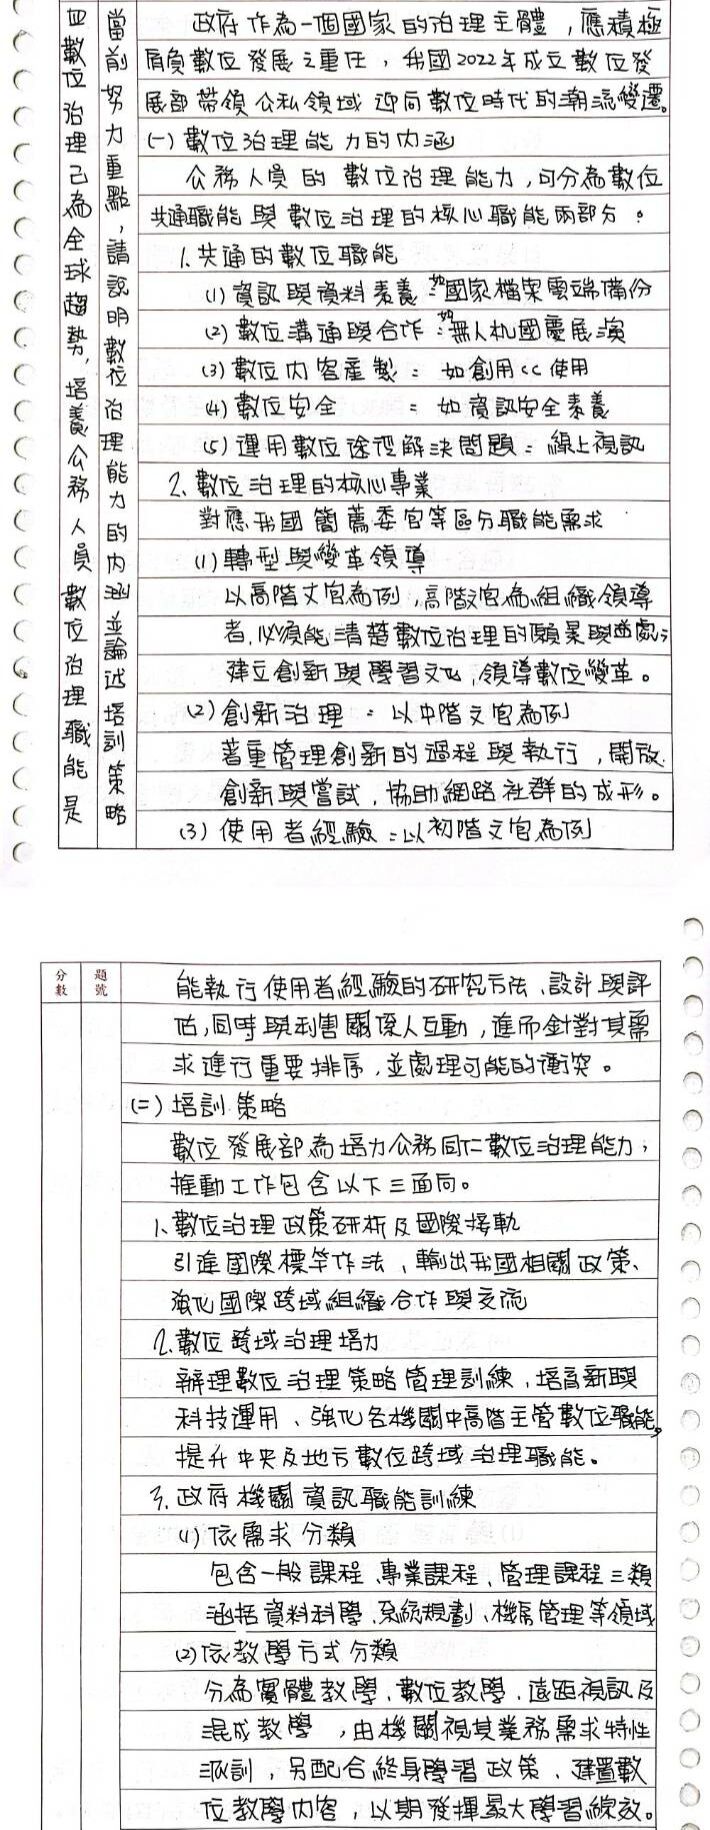 四數位治理已為全球趨勢,培養公務人員數位治理職能是
當前努力重點,請說明數位治理能力的內涵並論述培訓策略
政府作為一個國家的治理主體,應積極
肩負數位發展之重任,我國2022年成立數位發
展部帶領公私領域迎向數位時代的潮流變遷。
(一)數位治理能力的內涵
公務人員的數位治理能力,可分為數位
共通職能與數位治理的核心職能兩部分。
1.共通的數位職能
(1)資訊與資料素養:如國家檔案雲端備份
(2)數位溝通與合作:如無人機國慶展演
(3)數位內容產製:如創用cc使用
(4)數位安全:如資訊安全素養
(5)運用數位途徑解決問題:線上視訊
2.數位治理的核心專業
對應我國簡薦委官等區分職能需求
(1)轉型與變革領導
以高階文官為例,高階文官為組織領導
者,必須能清楚數位治理的願景與益處;
建立創新與學習文化,領導數位變革。
(2)創新治理:以中階文官為例
著重管理創新的過程與執行,開放
創新與嘗試,協助網路社群的成形。
(3)使用者經驗:以初階文官為例
分數
題號
能執行使用者經驗的研究方法、設計與評
估,同時與利害關係人互動,進而針對其需
求進行重要排序,並處理可能的衝突。
(二)培訓策略
數位發展部為培力公務同仁數位治理能力,
推動工作包含以下三面向。
1.數位治理政策研析及國際接軌
引進國際標竿作法,輸出我國相關政策、
強化國際跨域組織合作與交流
2.數位跨域治理培力
辦理數位治理策略管理訓練,培育新興
科技運用、強化各機關中高階主管數位職能。
提升中央及地方數位跨域治理職能。
3.政府機關資訊職能訓練
(1)依需求分類
包含一般課程、專業課程、管理課程三類
涵括資料科學、系統規劃、機房管理等領域
(2)依教學方式分類
分為實體教學、數位教學、遠距視訊及
混成教學,由機關視其業務需求特性
派訓,另配合終身學習政策、建置數
位教學內容,以期發揮最大學習綜效。